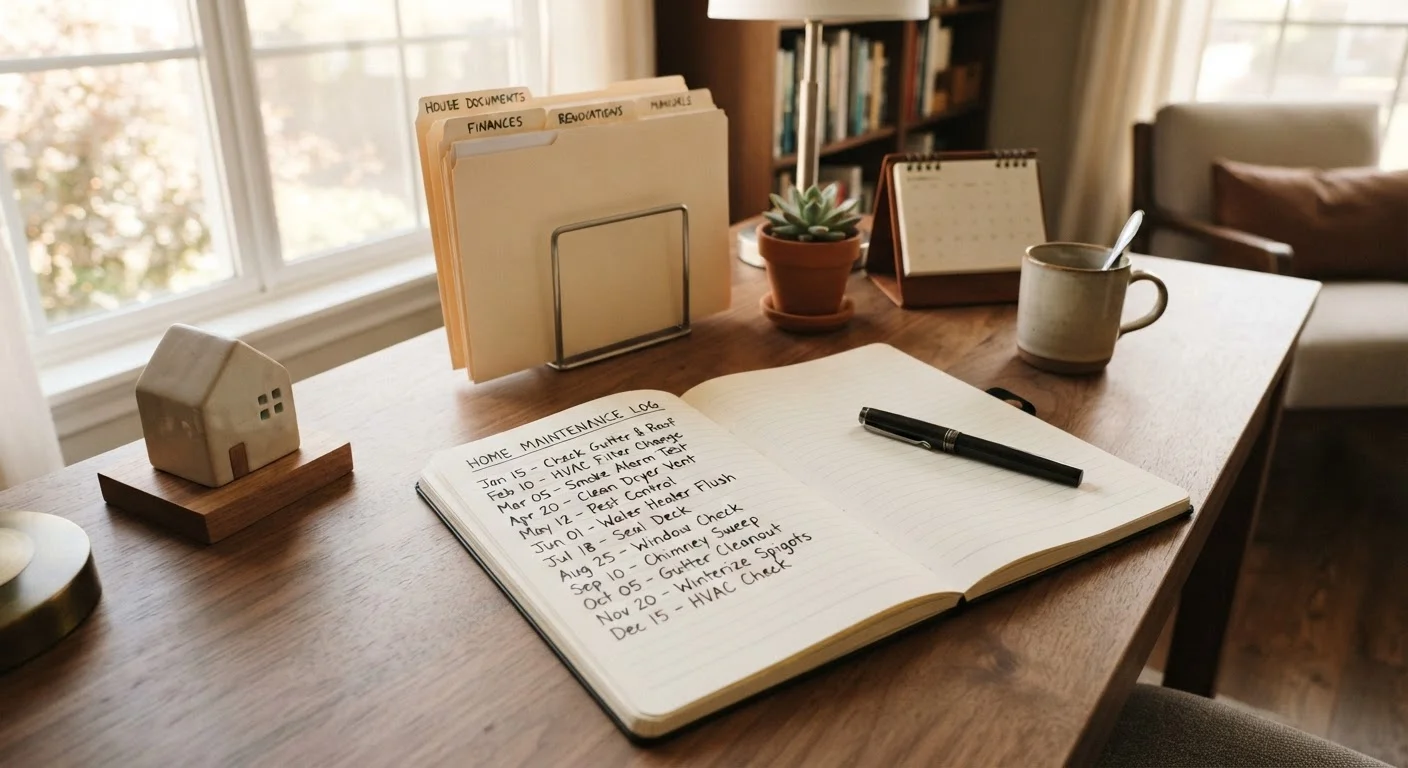 HOUSE DOCUMENTS
FINANCES
RENOVATIONS
MANUALS
HOME MAINTENANCE LOG
Jan 15 - Check Gutter & Roof
Feb 10 - HVAC Filter Change
Mar 05 - Smoke Alarm Test
Apr 20 - Clean Dryer Vent
May 12 - Pest Control
Jun 01 - Water Heater Flush
Jul 18 - Seal Deck
Aug 25 - Window Check
Sep 10 - Chimney Sweep
Oct 05 - Gutter Cleanout
Nov 20 - Winterize Spigots
Dec 15 - HVAC Check